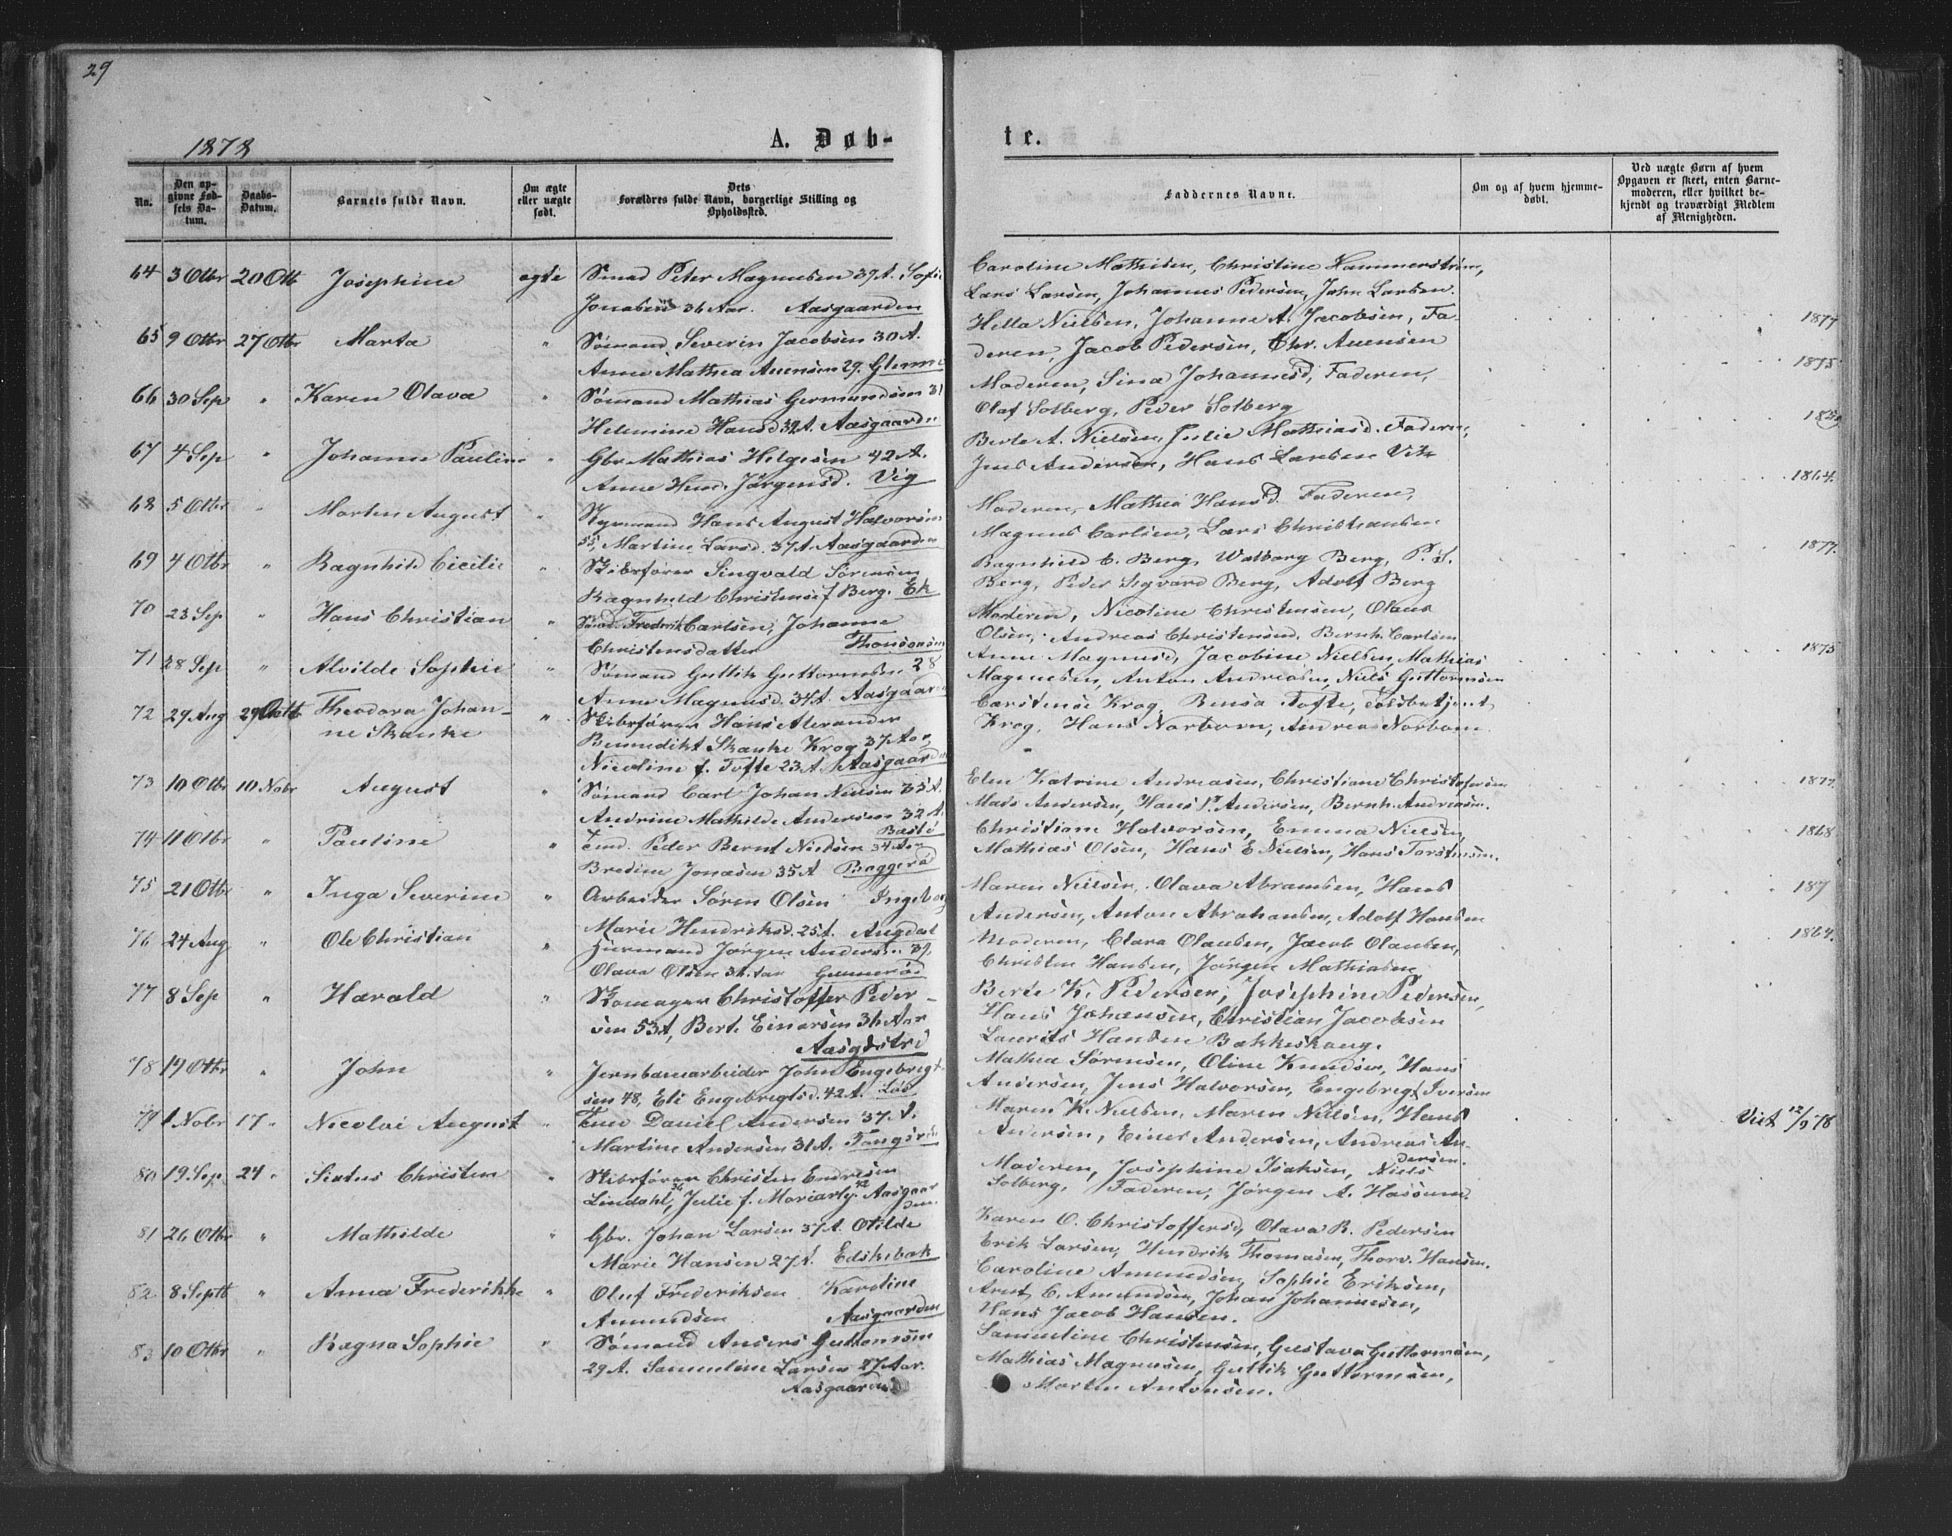 29
1878
A. Døb-
te.
No.
Den op-
givne Fød-
sels Da-
tum.
Daabs-
Datum.
Barnets fulde Navn.
Om ægte
eller uægte
født.
Dets
Forældres fulde Navn, borgerlige Stilling og
Opholdssted.
Faddernes Navne.
Om og af hvem hjemme-
døbt.
Ved uægte Børn af hvem
Opgaven er skeet, enten Barne-
moderen, eller hvilket be-
kjendt og troværdigt Medlem
af Menigheden.
64 3 Otbr 20 Otb Josephine ægte Smad Peter Magnussen 37 A. Sofie
36 Aar. Aasgaarden
Caroline Mathisen, Christine Hammerström,
Lars Larsen, Johannes Pedersen, John Larsen.
65 9 Otbr 27 Otbr Marta " Sömand Severin Jacobsen 30 A.
Anne Mathea Auensen 29. Glenne
Hella Nielsen, Johanne A. Jacobsen, Fa-
deren, Jacob Pedersen, Chr. Auensen
1877
66 30 Sep " Karen Olava " Sömand Mathias Germundsen 31
Helemine Hansd 32 A. Aasgaarden
Moderen, Sina Johannesd, Faderen,
Olaf Solberg, Peder Solberg
1875
67 4 Sep " Johanne Pauline " Gbr Mathias Helgesen 42 A.
Anne Jörgensd. Vig
Berte A. Nielsen, Julie Mathiasd. Faderen,
Jens Andersen, Hans Larsen Vik
68 5 Otbr " Morten August " Styrmand Hans August Halvorsen
35, Martine Larsd. 37 A. Aasgaarden
Moderen, Mathea Hansd. Faderen,
Magnus Carlsen, Lars Christiansen
1864.
69 4 Otbr " Ragnhild Cicilie " Skibsfører Singvald Sörensen
Ragnhild Christense f. Berg. Ek
Ragnhild C. Berg, Walborg Berg, P. S.
Berg, Peder Sigvard Berg, Adolf Berg
1877.
70 23 Sep " Hans Christian " Sömd. Fredrik Carlsen, Johanne
Christensdatter
Moderen, Nicoline Christensen, Olaus
Olsen, Andreas Christensen, Bernh. Carlsen
71 28 Sep " Alvilde Sophie " Sömand Guttik Guttormsen 28
Anne Magnusd. 34 A. Aasgaarden
Anne Magnusd, Jacobine Nielsen, Mathias
Magnussen, Anton Andreasen, Niels Guttormsen
1875
72 29 Aug 29 Theodora Johan-
ne Skanke " Skibsfører Hans Alexander
Bennedikt Skanke Krog 37 Aar,
Nicoline f. Tofte 23 A. Aasgaarden
Carstense Krog, Bensa Tofte, Toldbetjent
Krog, Hans Norbom, Andreas Norbom
73 10 Otbr 10 Nobr August " Sömand Carl Johan Nielsen 35 A.
Andrine Mathilde Andersen 32 A.
Bastö
Elen Katrine Andreasen, Christiane Christofersen
Mads Andersen, Hans P. Andersen, Bernh. Andreasen.
1877.
74 11 Otbr " Pauline " Tind. Peder Bernt Nielsen 34 Aar
Bredine Jonasen 35 A. Baggeröd
Christiane Halvorsen, Emma Nielsen,
Mathias Olsen, Hans E. Nielsen, Hans Torstensen.
1868
75 21 Otbr " Inga Severine " Arbeider Sören Olsen Ingeborg
Marie Hendriksd. 25 A. Augdal
Maren Nielsen, Olava Abramsen, Hans
Andersen, Anton Abrahamsen, Adolf Hansen
187
76 24 Aug " Ole Christian " Huusmand Jörgen Andersen 37.
Olava Olsen 31 Aar Gunneröd
Moderen, Clara Olausen, Jacob Olausen,
Christen Hansen, Jörgen Mathiasen
1864.
77 8 Sep " Harald " Skomager Christoffer Peder-
sen 53 A, Berte Einarsen 36 Aar
Aasgdstrd
Berte K. Pedersen, Josephine Pedersen,
Hans Johansen, Christian Jacobsen
Laurits Hansen Bakkeskaug.
78 19 Otbr " John " Jernbanearbeider John Engebregt-
sen 48, Eli Engebregtsd. 42 A.
Mathea Sörensen, Oline Knudsen, Hans
Andersen, Jens Halvorsen, Engebregt Iversen
79 1 Nobr 17 " Nicolai August " Daniel Andersen 37 A.
Martine Andersen 31 A.
Maren K. Nielsen, Maren Nielsen, Hans
Andersen, Einer Andersen, Andreas An-
dersen.
12/9 78
80 19 Sep 24 " Sixtus Christen " Skibsfører Christen Endresen
Lindahl, 36 Julie f. Moriarty 42 Aasgaar
den.
Moderen, Josephine Isaksen, Niels
Solberg, Faderen, Jörgen A. Hassum
81 26 Otbr " Mathilde " Gbr. Johan Larsen 37 A. Otilde
Marie Hansen 27 A. Edskebak
Karen O. Christoffersd, Olava R. Pedersen
Erik Larsen, Hendrik Thomasen, Thorv. Hansen.
82 8 Septb " Anna Frederikke " Oluf Frederiksen Karoline
Amundsen Aasgaarden
Caroline Amundsen, Sophie Eriksen,
Arnt C. Amundsen, Johan Johannesen,
Hans Jacob Hansen.
83 10 Otbr " Ragna Sophie " Sömand Anders Guttormsen
29 A. Samueline Larsen 27 Aar.
Aasgaarden
Samueline Christensen, Gustava Guttormsen,
Mathias Magnusen, Guttik Guttormsen,
Morten Antonsen.